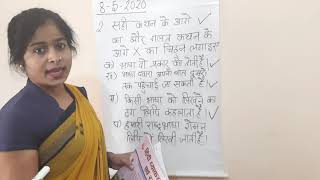 8-5-2020
2 सही कथन के आगे ✓
का और गलत कथन के
आगे X का चिह्न लगाइए
क) भाषा दो प्रकार की होती है। ✓
ख) भाषा द्वारा अपनी बात दूसरों
तक पहुँचाई जा सकती है ✓
ग) किसी भाषा को लिखने का
ढंग लिपि कहलाता है ✓
घ) हमारी राष्ट्रभाषा रोमन
लिपि में लिखी जाती है।